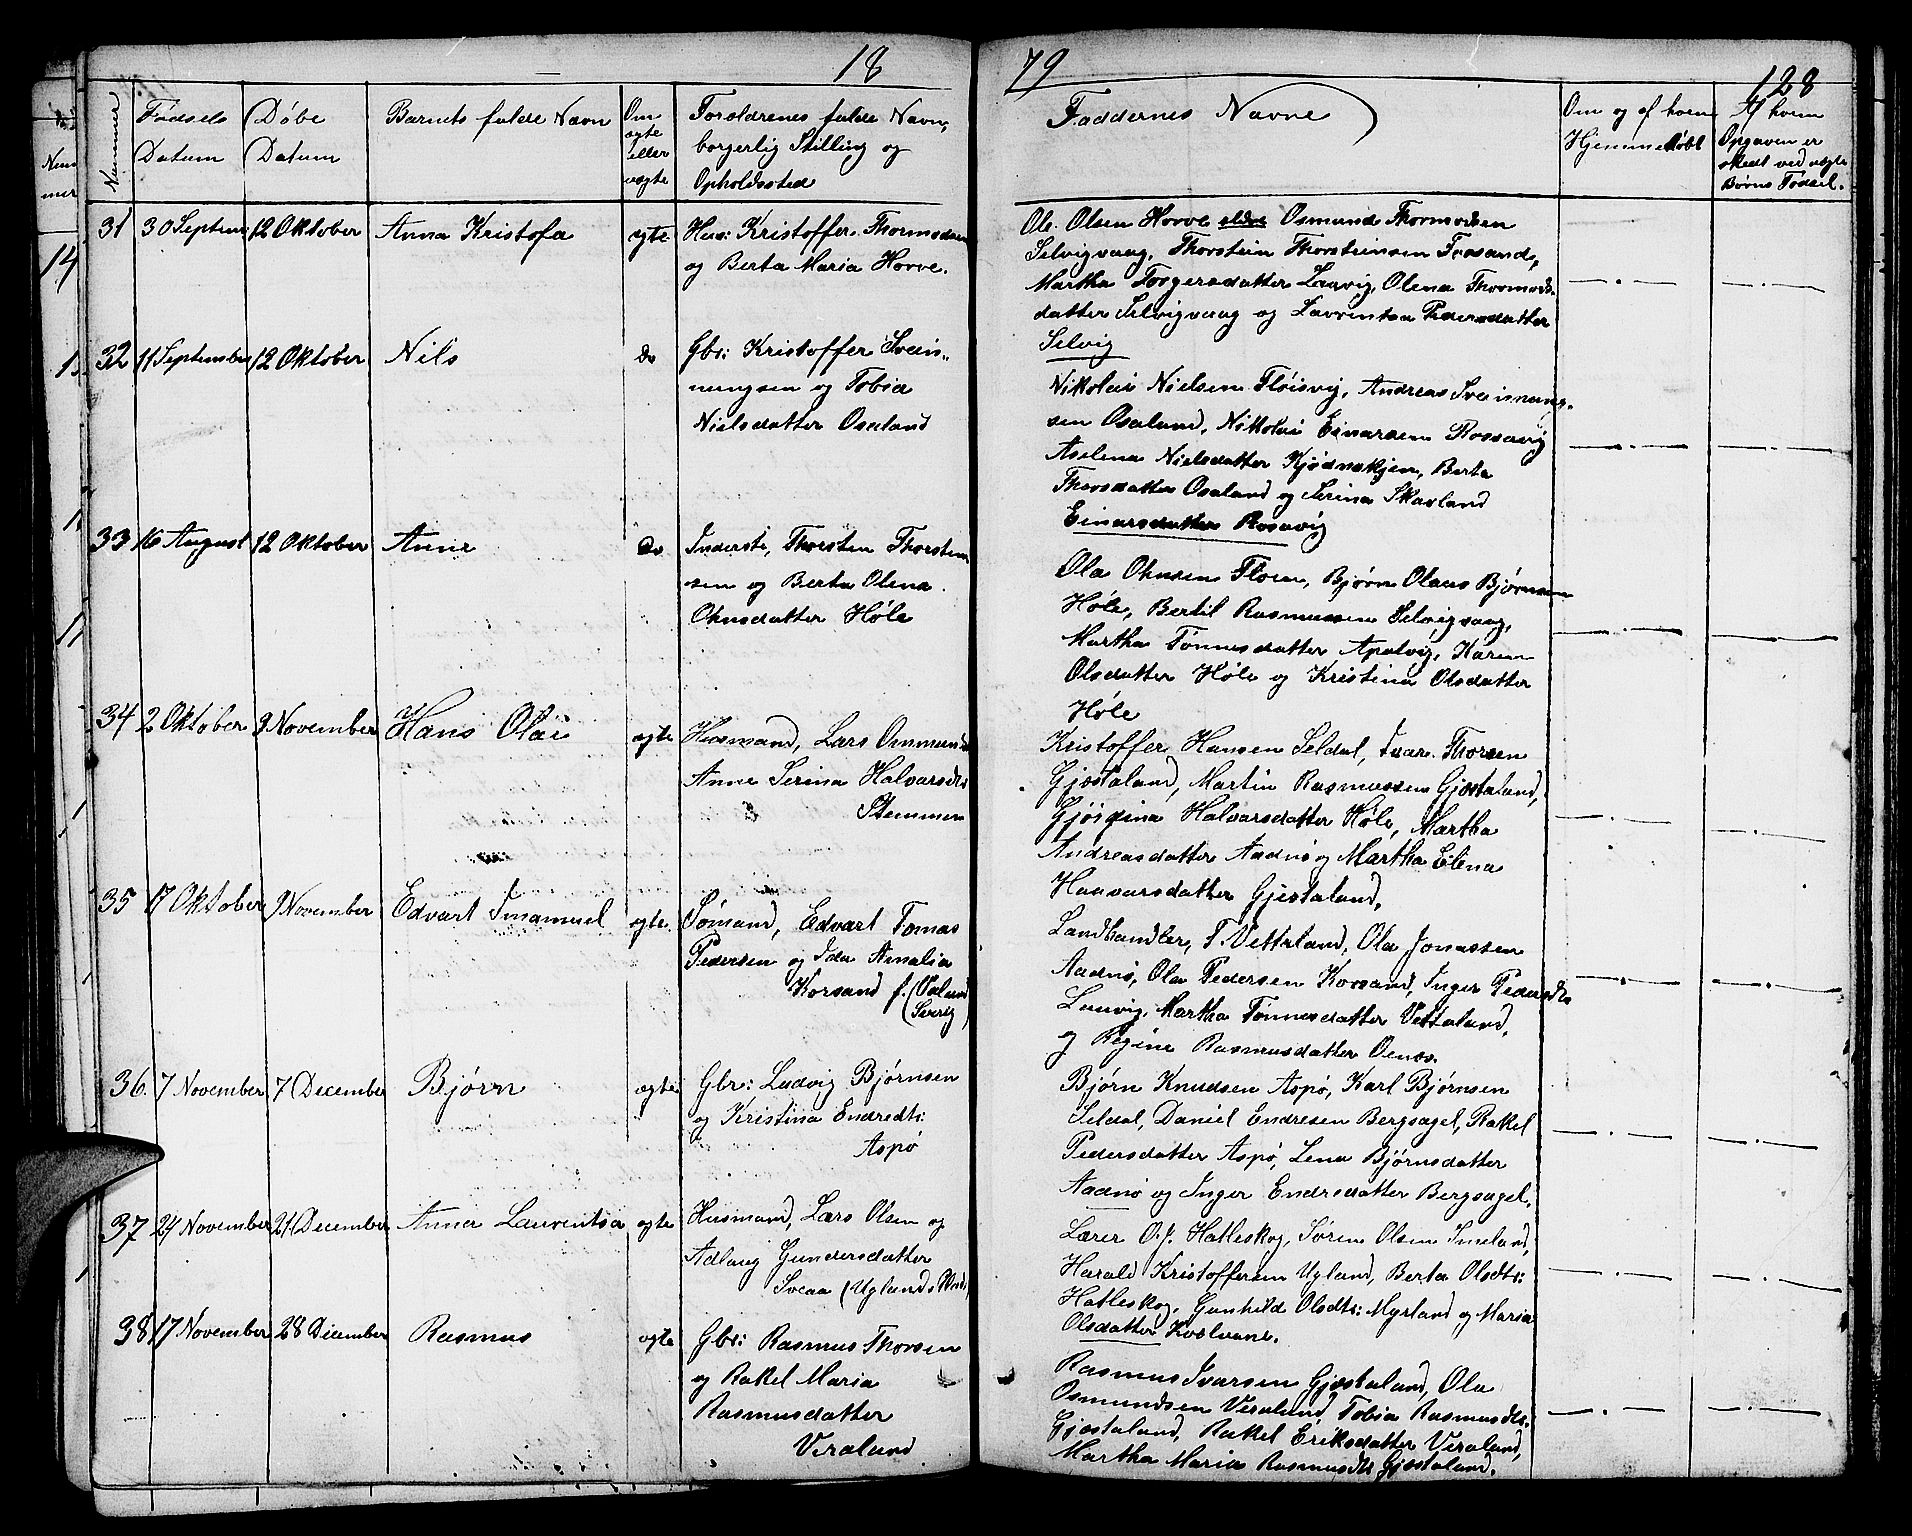 18
79
128
Nummer
Fødsels Datum
Døbe Datum
Barnets fulde Navn
Om ægte eller uægte
Foreldrenes fulde Navn, borgerlig Stilling og Opholdssted
Faddernes Navne
Om og af hvem Hjemmedøbt
Af hvem Opgaven er skedt ved uægte Børns Fødsel.
31 30 Septem: 12 Oktober Anna Kristofa ægte Hus: Kristoffer Thormodsen
og Berta Maria Horve.
Ole Olsen Horve Osmund Thormodsen
Selvigvaag, Thorstein Thorsteinsen Fossand,
Martha Torgersdatter Lauvig, Olena Thormods-
datter Selvigvaag og Lavrentsa Pedersdatter
Selvig
32 11 September 12 Oktober Nils do Gbr: Kristoffer Svein-
nungsen og Tobia
Nielsdatter Osaland
Nikolai Nielsen Fløisvig, Andreas Sveinung-
sen Osaland, Nikolai Einarsen Rossavig
Aselena Nielsdatter Kjødneskjen, Berta
Thorsdatter Osaland og Serina Skavland
Einarsdatter Rosavig
33 16 August 12 Oktober Anne do Inderste, Thorsten Thorsten-
sen og Berta Olena
Ohnsdatter Høle
Ola Ohnsen Floen, Bjørn Olaus Bjørnsen
Høle, Bertil Rasmussen Selvigvaag,
Martha Tønnesdatter Apalvig, Karen
Olsdatter Høle og Kristina Olsdatter
Høle
34 2 Oktober 9 November Hans Olai ægte Husmand, Lars Ommund
Anne Serina Halvarsdtr
Stemmen
Kristoffer Hansen Seldal, Ivar Thorsen
Gjæstaland, Martin Rasmussen Gjæstaland,
Gjørgina Halvarsdatter Høle, Martha
Andreasdatter Aadnø og Martha Elena
Haavarsdatter Gjestaland,
35 17 Oktober 9 November Edvart Imanuel ægte Sømand, Edvart Tomas
Pedersen og Ida Amalia
Korsand f. (
Sverig)
Landhandler, T. Vetrland, Ola Jonassen
Aadnø, Ola Pedersen Korsand, Inger Pedersdtr
Lauvig, Martha Tønnesdatter Vettaland,
og Regine Rasmusdatter
36. 7 November 7 December Bjørn ægte Gbr: Ludvig Bjørnsen
og Kristina Endredtr:
Aspø
Bjørn Knudsen Aspø, Karl Bjørnsen
Seldal, Daniel Endresen Bergsagel, Rakel
Pedersdatter Aspø, Lena Bjørnsdatter
Aadnø og Inger Endresdatter Bergsagel,
37 24 November 21 December Anna Laurentsa ægte Husmand, Lars Olsen og
Adlaug Gundersdatter
Sveaa (Uglands Plads)
Lærer O. J. Hatleskog, Søren Olsen Imeland,
Harald Kristoffersen Ugland, Berta Olsdtr:
Hatleskog, Gunhild Olsdtr: Myrland og Maria
Olsdatter
38 17 November 28 December Rasmus ægte Gbr: Rasmus Thorsen
og Rakel Maria
Rasmusdatter
Veraland
Rasmus Ivarsen Gjæstaland, Ola
Osmundsen Veraland, Tobia Rasmusdtr:
Gjæstaland, Rakel Eriksdatter Veraland,
Martha Maria Rasmusdtr Gjæstaland.